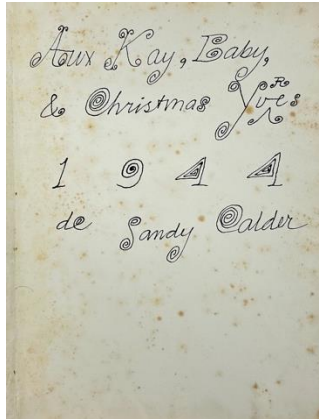 Aux Kay, Baby,
R
& Christmas Yves
1 9 4 4
de Sandy Calder